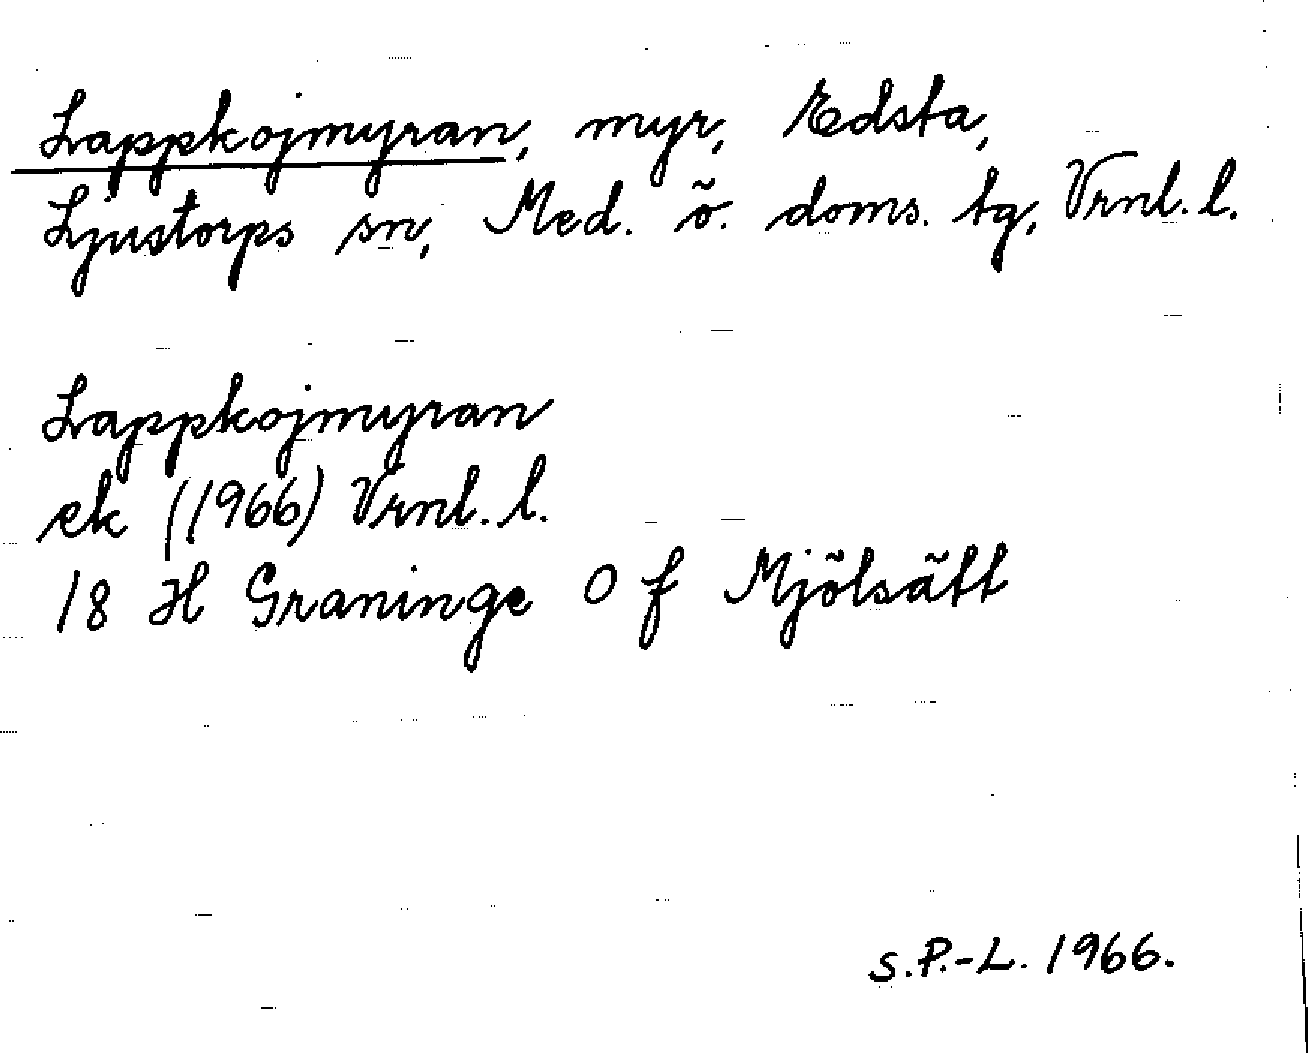 Lappkojmyran, myr, Edsta,
Ljustorps sn, Med. ö. doms. tg, Vrnl. l.
Lappkojmyran
ek (1966) Vrnl. l.
18 H Graninge O f Mjölsätt
S.P.-L. 1966.